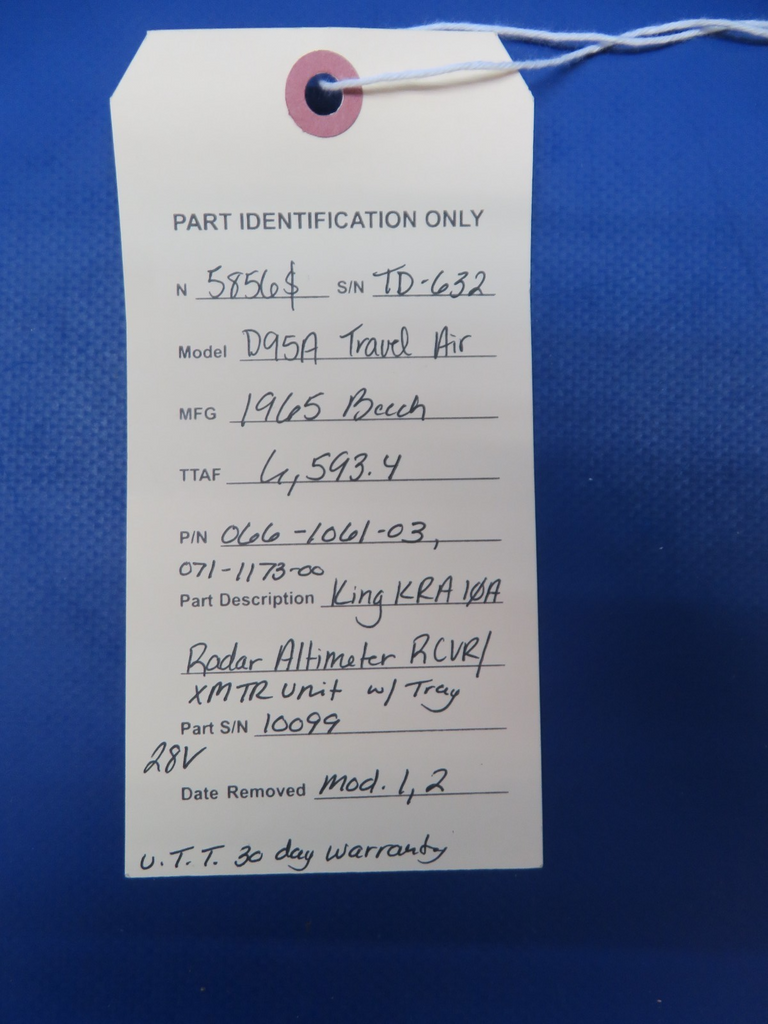 PART IDENTIFICATION ONLY
N 5856$ S/N TD-632
Model D95A Travel Air
MFG 1965 Beech
TTAF 6,593.4
P/N 066-1061-03,
071-1173-00
Part Description King KRA 10A
Radar Altimeter RCVR/
XMTR unit w/ Tray
Part S/N 10099
28V
Date Removed Mod. 1,2
U.T.T. 30 day warranty